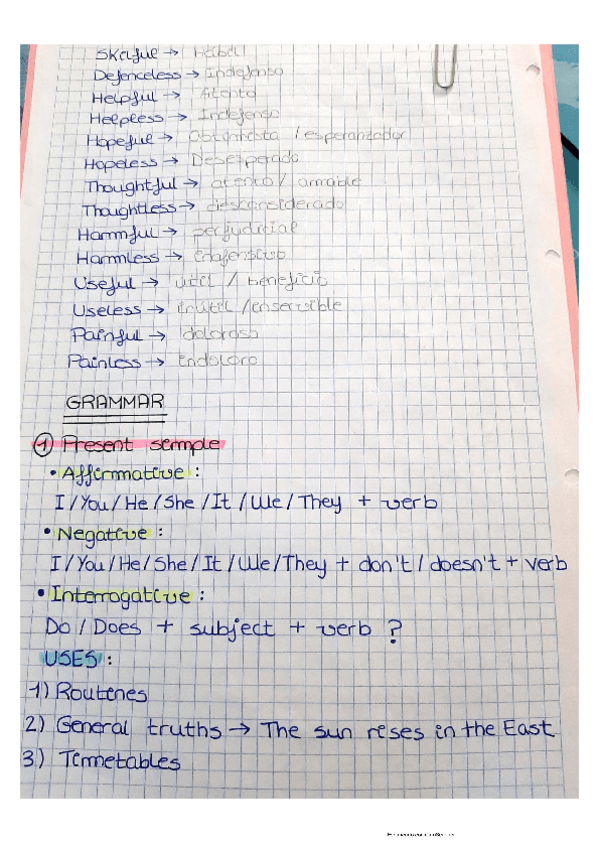 Skilful → Hábil
Defenceless → Indefenso
Helpful → Atento
Helpless → Indefenso
Hopeful → Optimista / esperanzador
Hopeless → Desesperado
Thoughtful → atento / amable
Thoughtless → desconsiderado
Harmful → perjudicial
Harmless → inofensivo
Useful → útil / beneficio
Useless → inútil / inservible
Painful → doloroso
Painless → indoloro
GRAMMAR
1 Present simple
• Affirmative :
I / You / He / She / It / We / They + verb
• Negative :
I / You / He / She / It / We / They + don't / doesn't + verb
• Interrogative :
Do / Does + subject + verb ?
USES :
1) Routines
2) General truths → The sun rises in the East
3) Timetables